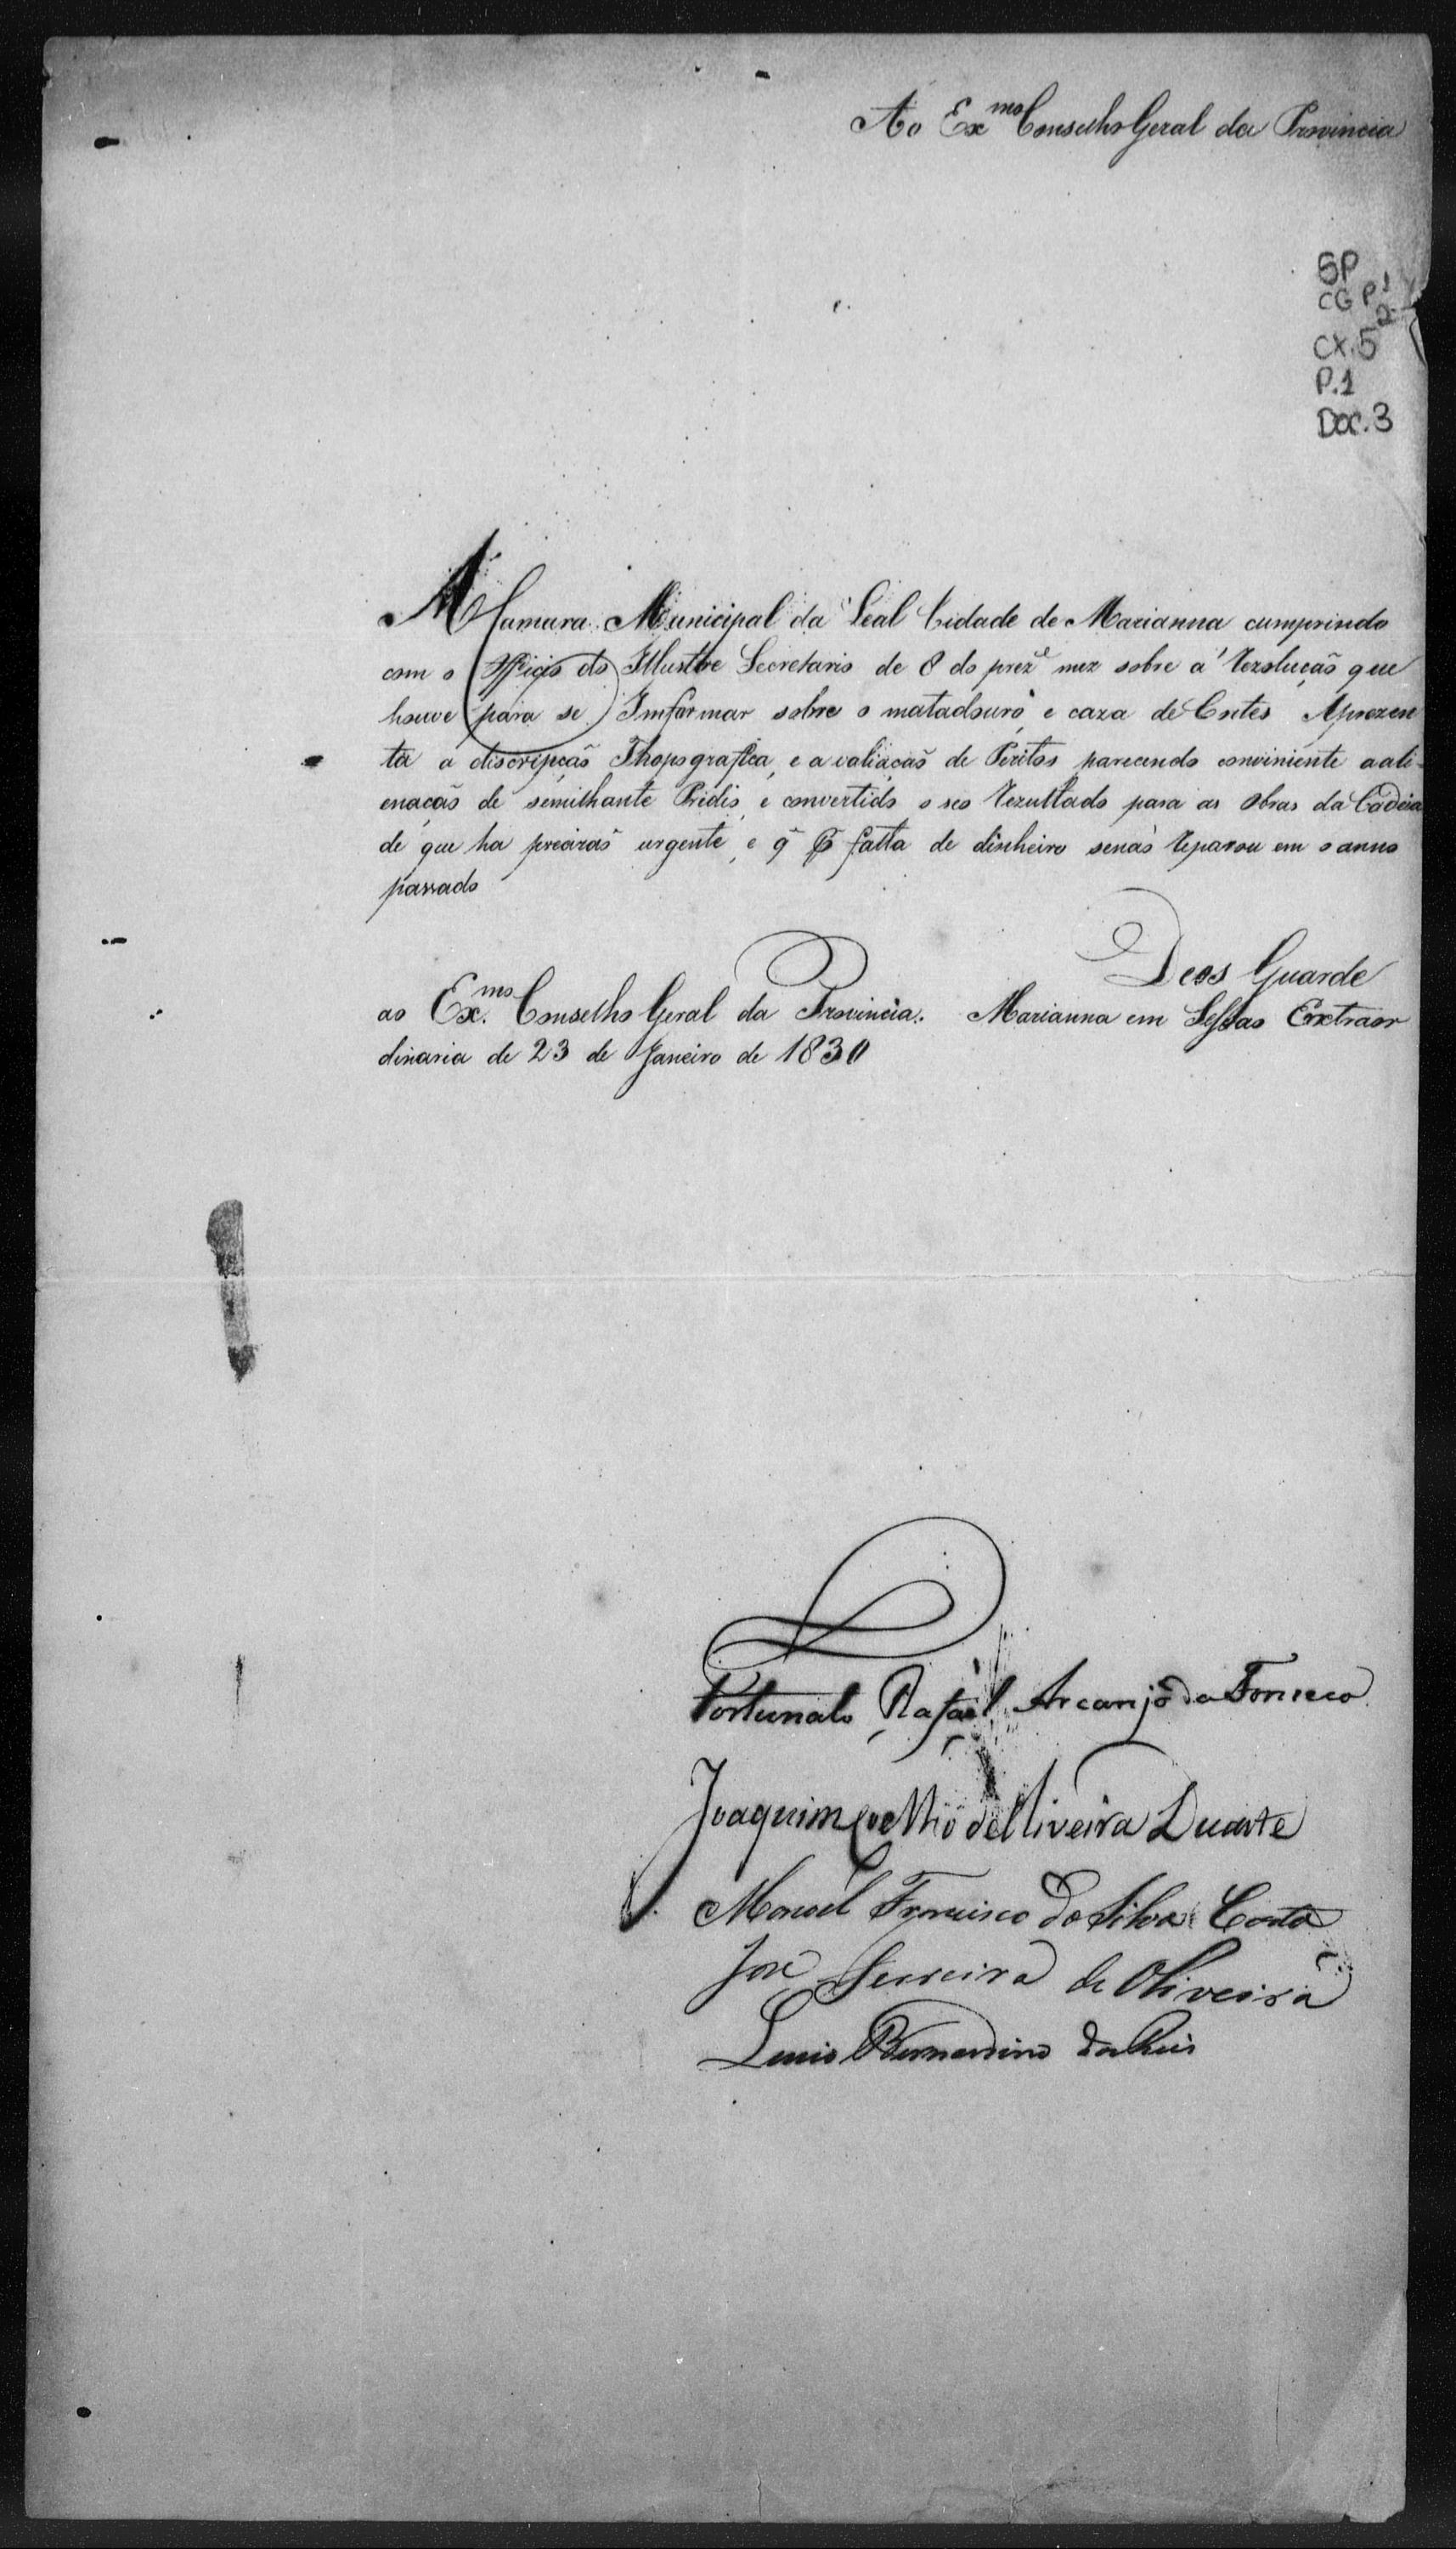 Ao Ex.mo Conselho Geral da Provincia
SP
CG P¹
2
CX.5
P.1
DOC.3
A Camara Municipal da Leal Cidade de Marianna cumprindo
com o Officio do Illustre Secretario de 8 do prez.e mez sobre a Rezolução que
houve para se Imformar sobre o matadouro e caza de Cortes Aprezen
ta a discripção Thopografica, e avaliação de Peritos parecendo conviniente a ali-
enação de semilhante Prédio, e convertido o seo Rezultado para as Obras da Cadeia
de que ha precizão urgente, e q̃ p falta de dinheiro senão Reparou em o anno
passado
Deos Guarde
ao Ex.mo Conselho Geral da Provincia. Marianna em Sessão Extraor
dinaria de 23 de Janeiro de 1830
Fortunato Rafael Arcanjo da Fonseca
Joaquim Coelho de Oliveira Duarte
Manoel Francisco da Silva Costa
Joze Ferreira de Oliveira
Bernardino dos Reis